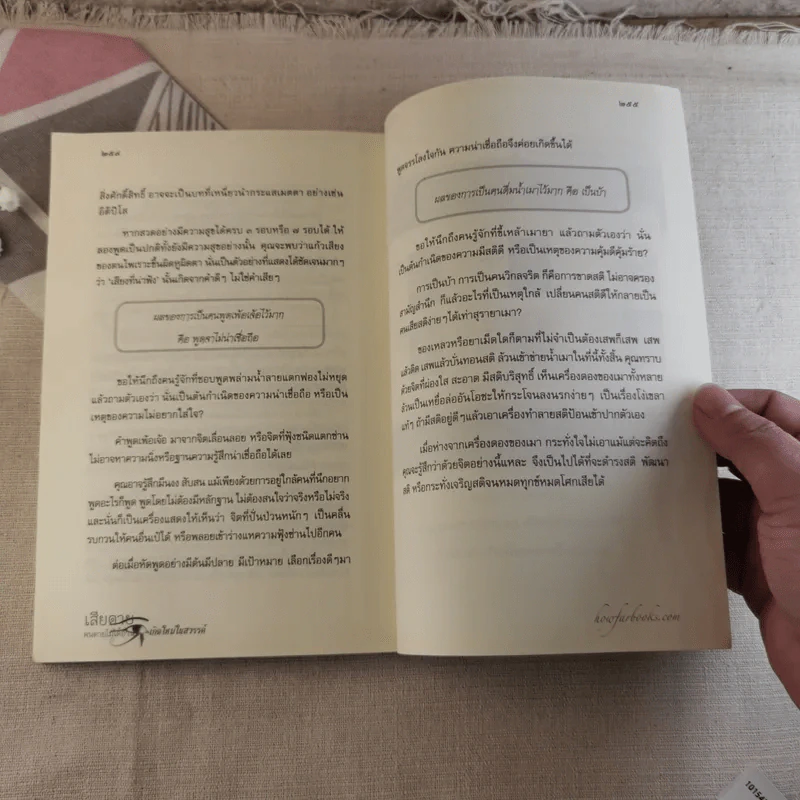 ๒๕๔
สิ่งศักดิ์สิทธิ์ อาจจะเป็นบทที่เหนี่ยวนำกระแสเมตตา อย่างเช่น
อิติปิโส
หากสวดอย่างมีความสุขได้ครบ ๓ รอบหรือ ๗ รอบได้ ให้
ลองพูดเป็นปกติทั้งยังมีความสุขอย่างนั้น คุณจะพบว่าแก้วเสียง
ของตนไพเราะขึ้นผิดหูผิดตา นั่นเป็นตัวอย่างที่แสดงได้ชัดเจนมากๆ
ว่า 'เสียงที่น่าฟัง' นั้นเกิดจากคำดีๆ ไม่ใช่คำเสียๆ
ผลของการเป็นคนพูดเพ้อเจ้อไว้มาก
คือ พูดจาไม่น่าเชื่อถือ
ขอให้นึกถึงคนรู้จักที่ชอบพูดพล่ามน้ำลายแตกฟองไม่หยุด
แล้วถามตัวเองว่า นั่นเป็นต้นกำเนิดของความน่าเชื่อถือ หรือเป็น
เหตุของความไม่อยากใส่ใจ?
คำพูดเพ้อเจ้อ มาจากจิตเลื่อนลอย หรือจิตที่ฟุ้งชนิดแตกซ่าน
ไม่อาจหาความนิ่งหรือฐานความรู้สึกน่าเชื่อถือได้เลย
คุณอาจรู้สึกมึนงง สับสน แม้เพียงด้วยการอยู่ใกล้คนที่นึกอยาก
พูดอะไรก็พูด พูดโดยไม่ต้องมีหลักฐาน ไม่ต้องสนใจว่าจริงหรือไม่จริง
และนั่นก็เป็นเครื่องแสดงให้เห็นว่า จิตที่ปั่นป่วนหนักๆ เป็นคลื่น
รบกวนให้คนอื่นเป๋ได้ หรือพลอยเข้าร่างแหความฟุ้งซ่านไปอีกคน
ต่อเมื่อหัดพูดอย่างมีต้นมีปลาย มีเป้าหมาย เลือกเรื่องดีๆมา
เสียดาย
คนตายไม่ได้อ่าน
เกิดใหม่ในสวรรค์
๒๕๕
พูดจรรโลงใจกัน ความน่าเชื่อถือจึงค่อยเกิดขึ้นได้
ผลของการเป็นคนดื่มน้ำเมาไว้มาก คือ เป็นบ้า
ขอให้นึกถึงคนรู้จักที่ขี้เหล้าเมายา แล้วถามตัวเองว่า นั่น
เป็นต้นกำเนิดของความมีสติดี หรือเป็นเหตุของความคุ้มดีคุ้มร้าย?
การเป็นบ้า การเป็นคนวิกลจริต ก็คือการขาดสติ ไม่อาจครอง
สามัญสำนึก ก็แล้วอะไรที่เป็นเหตุใกล้ เปลี่ยนคนสติดีให้กลายเป็น
คนเสียสติง่ายๆได้เท่าสุรายาเมา?
ของเหลวหรือยาเม็ดใดก็ตามที่ไม่จำเป็นต้องเสพก็เสพ เสพ
แล้วติด เสพแล้วบั่นทอนสติ ล้วนเข้าข่ายน้ำเมาในที่นี้ทั้งสิ้น คุณทราบ
ด้วยจิตที่ผ่องใส สะอาด มีสติบริสุทธิ์ เห็นเครื่องดองของเมาทั้งหลาย
ล้วนเป็นเหยื่อล่ออันโอชะให้กระโจนลงนรกง่ายๆ เป็นเรื่องโง่เขลา
แท้ๆ ถ้ามีสติอยู่ดีๆแล้วเอาเครื่องทำลายสติป้อนเข้าปากตัวเอง
เมื่อห่างจากเครื่องดองของเมา กระทั่งใจไม่เอาแม้แต่จะคิดถึง
คุณจะรู้สึกว่าด้วยจิตอย่างนี้แหละ จึงเป็นไปได้ที่จะดำรงสติ พัฒนา
สติ หรือกระทั่งเจริญสติจนหมดทุกข์หมดโศกเสียได้
howfarbooks.com